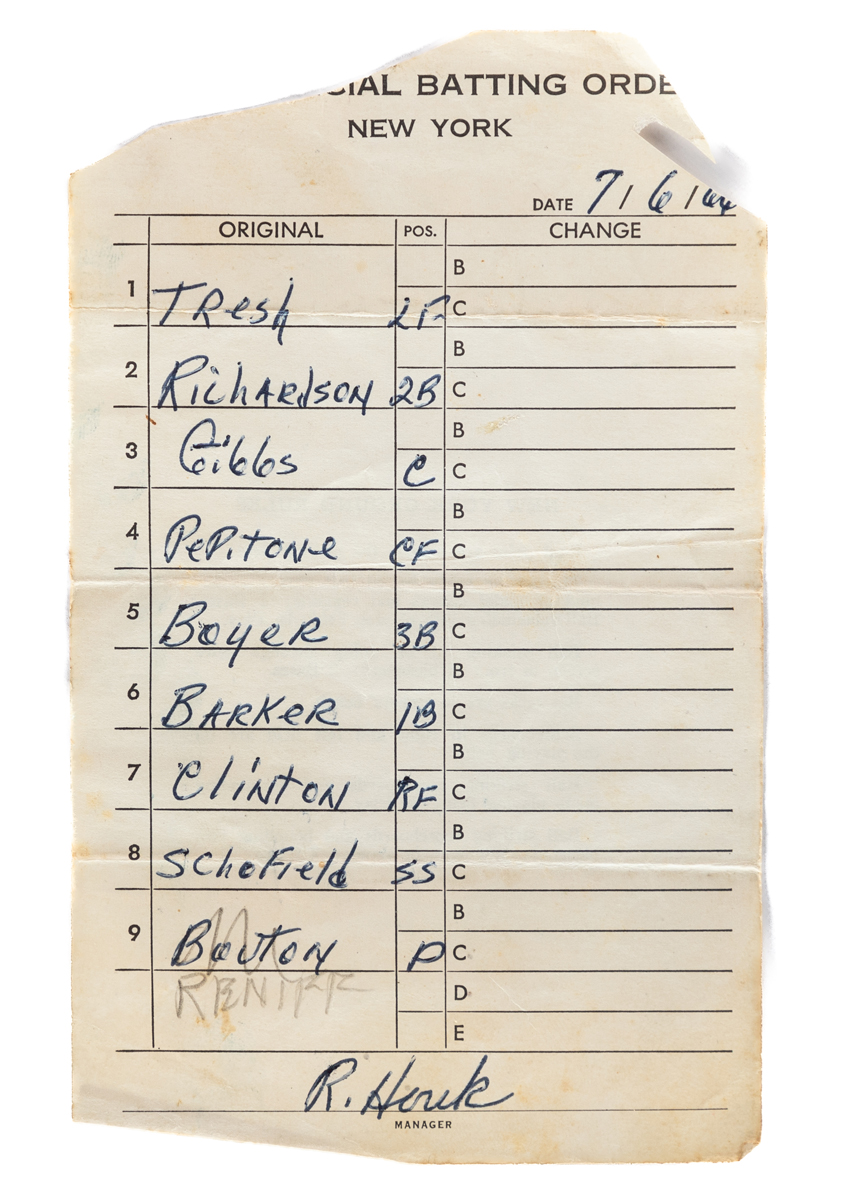 CIAL BATTING ORDE
NEW YORK
DATE 7/6/66
ORIGINAL POS. CHANGE
B
1 TResh LF C
B
2 RichARdsON 2B C
B
3 Gibbs C C
B
4 PePiTONe CF C
B
5 BoyeR 3B C
B
6 BARKeR 1B C
B
7 ClINTON RF C
B
8 SchoField SS C
B
9 BouTON P C
RENIFF D
E
R. Houk
MANAGER